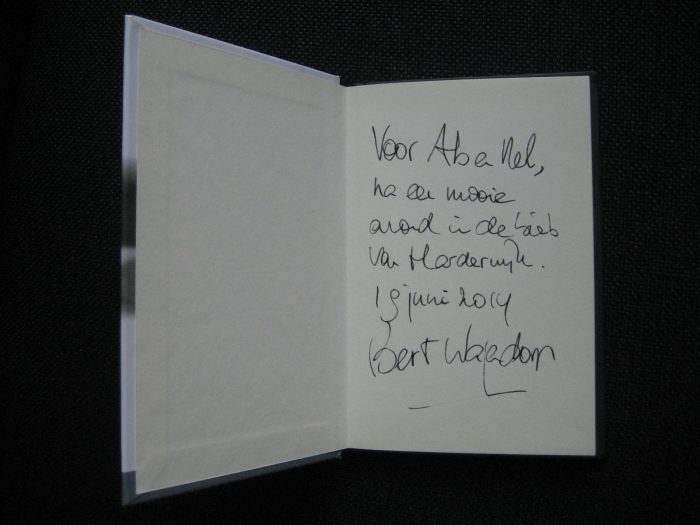 Voor Ab en Nel,
na een mooie
avond in de bieb
van Harderwijk.
19 juni 2014
Bert Wagendorp